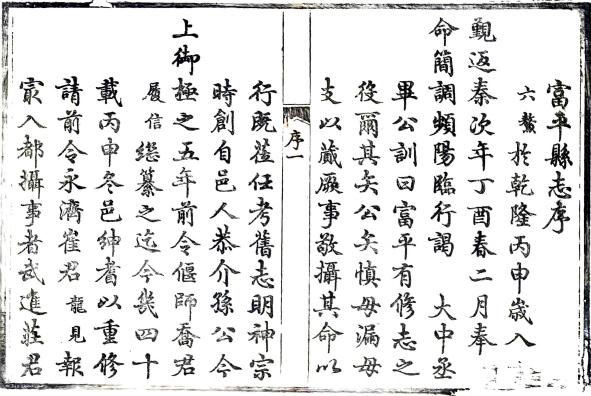 富平縣志序
六鰲於乾隆丙申嵗入
覲返秦次年丁酉春二月奉
命簡調頻陽臨行謁 大中丞
畢公訓曰富平有修志之
役爾其矣公矣慎毋漏毋
支以蕆厥事敬攝其命以
序一
行既蒞任考舊志明神宗
時創自邑人恭介孫公今
上御極之五年前令偃師喬君
履信總纂之迄今幾四十
載丙申冬邑紳耆以重修
請前令永濟崔君龍見報
㝡入都攝事者武進莊君